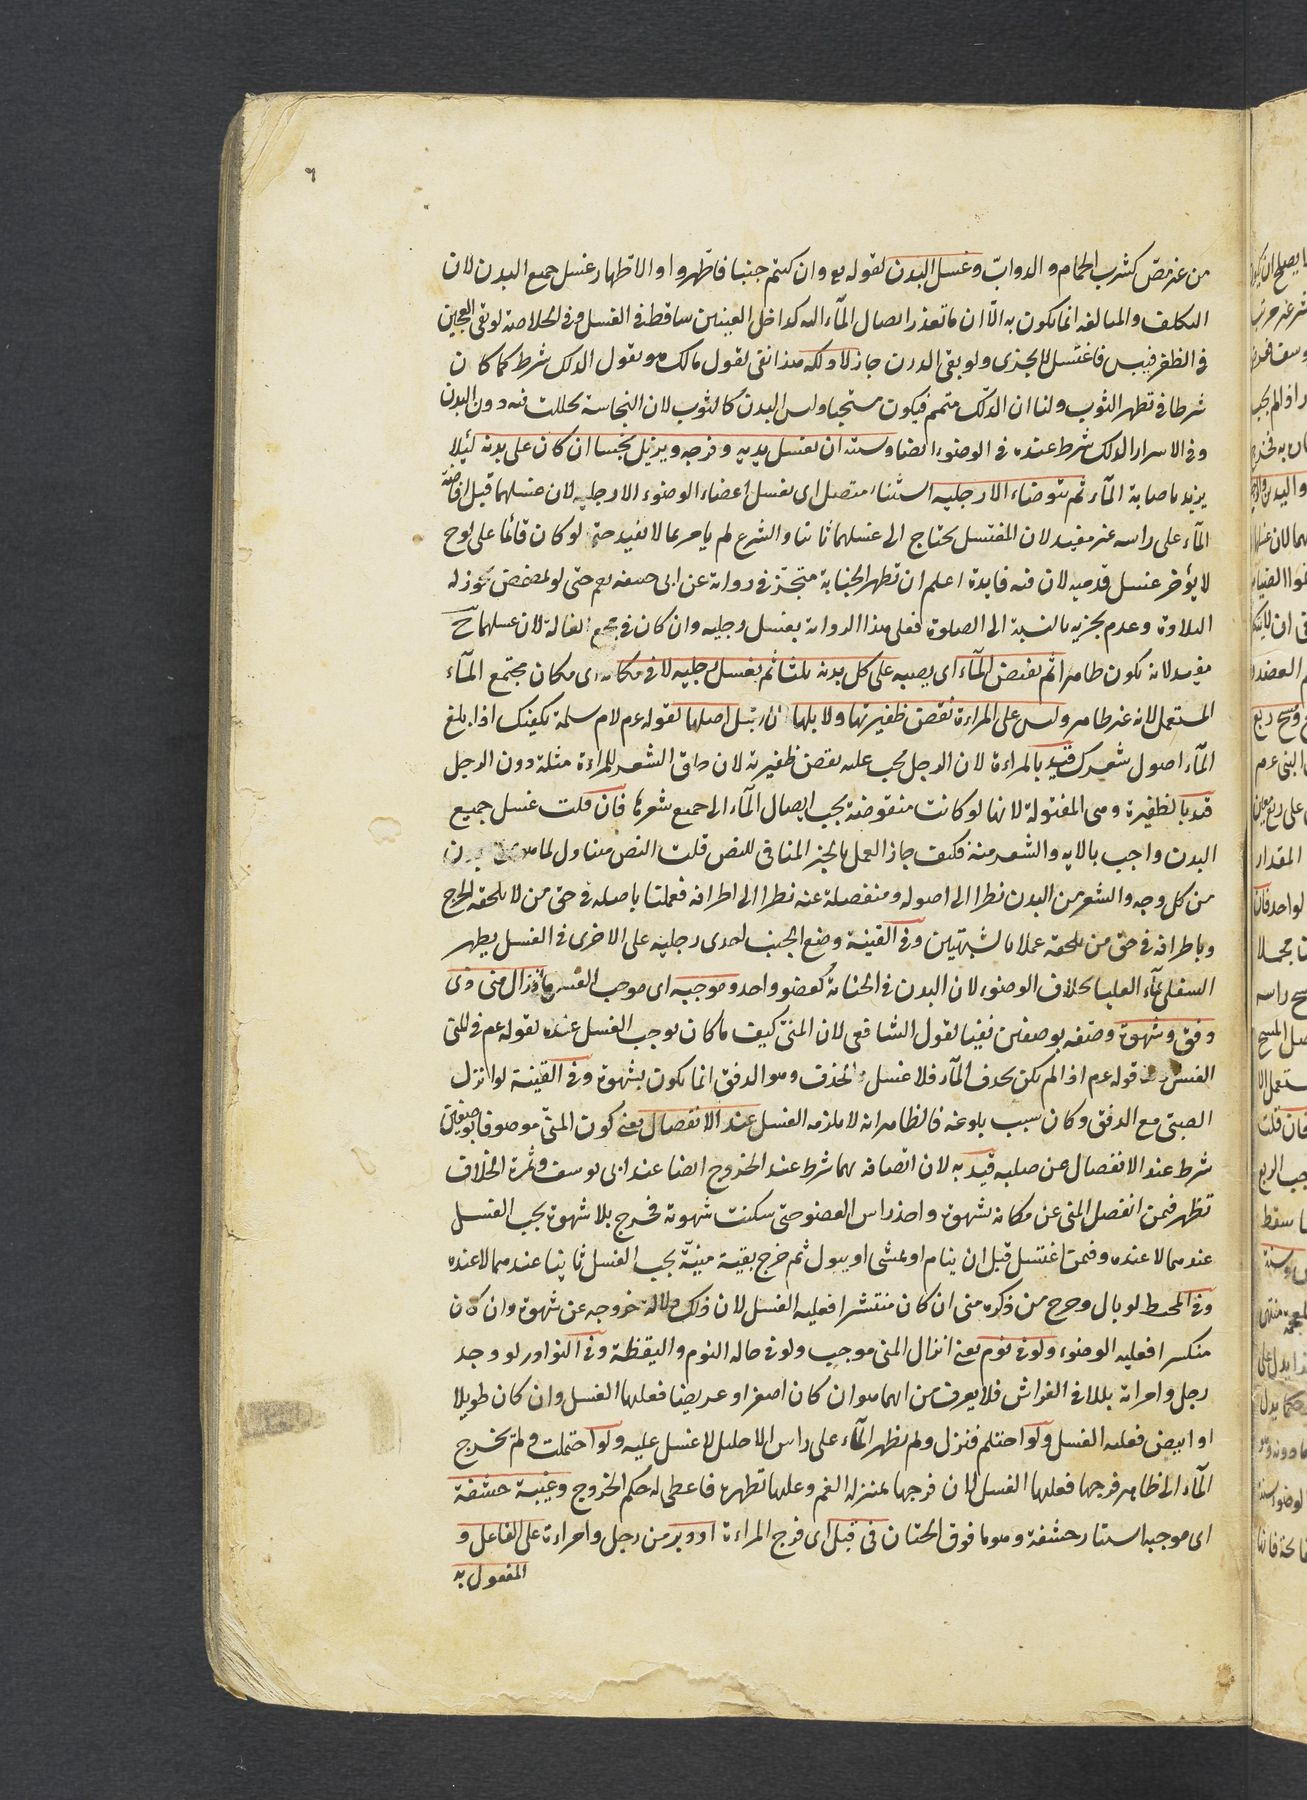 ٦
من غير مصّ كشرب الحمام والدوابّ وغسل البدن لقوله تع وان كنتم جنبا فاطهروا والاطهار غسل جميع البدن لان
التكلف والمبالغة انما يكون به الّا ان ما تعذر ايصال المآء اليه كداخل العينين ساقط في الغسل وفي الخلاصة لو بقى العجين
في الظفر فيبس فاغتسل لا يجزى ولو بقى الدرن جاز لا دلكه هذا نفى لقول مالك هو يقول الدلك شرط كما كان
شرطا في تطهر الثوب ولنا ان الدلك متمم فيكون مستحبا وليس البدن كالثوب لان النجاسة تخللت فيه دون البدن
وفي الاسرار الدلك شرط عنده في الوضوء ايضا وسنته ان يغسل يديه وفرجه ويزيل نجسا ان كان على بدنه لئلا
يزيد باصابة المآء ثم يتوضاء الا رجليه استثناء متصل اى يغسل اعضاء الوضوء الا رجليه لان غسلهما قبل افاضة
المآء على راسه غير مفيد لان المغتسل يحتاج الى غسلهما ثانيا والشرع لم يامر بما لا يفيد حتى لو كان قائما على لوح
لا يؤخر غسل قدميه لان فيه فايدة اعلم ان تطهر الجنابة متجزّ في رواية عن ابى حنيفه رحم حتى لو تمضمض يجوز له
التلاوة وعدم تجزيه بالنسبة الى الصلوة فعلى هذا الرواية يغسل رجليه وان كان في مجمع الغسالة لان غسلهما ح
مفيد لانه يكون طاهرا ثم يفيض المآء اى يصبه على كل بدنه ثلثا ثم يغسل رجليه لا في مكانه اى مكان مجتمع المآء
المستعمل لانه غير طاهر وليس على المراءة نقض ظفيرتها ولا بلها ان ابتل اصلها لقوله عم لام سلمة يكفيك اذا بلغ
المآء اصول شعرك قيد بالمراءة لان الرجل يجب عليه نقض ظفيرته لان حلق الشعر للمراءة مثلة دون الرجل
قيد بالظفيرة وهى المفتولة لانها لو كانت منقوضة يجب ايصال المآء الى جميع شعرها فان قلت غسل جميع
البدن واجب بالاية والشعر منه فكيف جاز العمل بالخبر المنافى للنص قلت النص متناول لما هو بدن
من كل وجه والشعر من البدن نظرا الى اصوله ومنفصلة عنه نظرا الى اطرافه فعملنا باصله في حق من لا يلحقه الحرج
وباطرافه في حق من يلحقه عملا بالشبهتين وفي القنية وضع الجنب احدى رجليه على الاخرى في الغسل يطهر
السفلى بمآء العليا بخلاف الوضوء لان البدن في الجنابة كعضو واحد وموجبه اى موجب الغسل انزال منى ذى
دفق وشهوة وصفه بوصفين نفيا لقول الشافعى لان المنىّ كيف ما كان يوجب الغسل عنده لقوله عم في المنى
الغسل ولنا قوله عم اذا لم تكن تحذف المآء فلا غسل والحذف وهو الدفق انما يكون بشهوة وفي القنية لو انزل
الصبىّ مع الدفق وكان سبب بلوغه فالظاهر انه لا يلزمه الغسل عند الانفصال يعنى كون المنىّ موصوفا بوصفين
شرط عند الانفصال عن صلبه قيد به لان اتصافه بهما شرط عند الخروج ايضا عند ابى يوسف وثمرة الخلاف
تظهر فيمن انفصل المنى عن مكانه بشهوة واخذ راس العضو حتى سكنت شهوته فخرج بلا شهوة يجب الغسل
عندهما لا عنده وفيمن اغتسل قبل ان ينام او يمشى او يبول ثم خرج بقية منيّه يجب الغسل ثانيا عندهما لا عنده
وفي المحيط لو بال وخرج من ذكره منى ان كان منتشرا فعليه الغسل لان ذلك دلالة خروجه عن شهوة وان كان
منكسرا فعليه الوضوء ولو في نوم يعنى انزال المنى موجب ولو في حالة النوم واليقظة وفي النوادر لو وجد
رجل وامراة بللا في الفراش فلا يعرف من ايهما هو ان كان اصفر او عريضا فعليها الغسل وان كان طويلا
او ابيض فعليه الغسل ولو احتلم فنزل ولم يظهر المآء على راس الاحليل لا غسل عليه ولو احتملت ولم يخرج
المآء الى ظاهر فرجها فعليها الغسل لان فرجها بمنزلة الفم وعليها تطهره فاعطى له حكم الخروج وغيبة حشفة
اى موجبه استتار حشفة وهو ما فوق الختان في قبل اى فرج المراءة او دبر من رجل وامراءة على الفاعل و
المفعول به